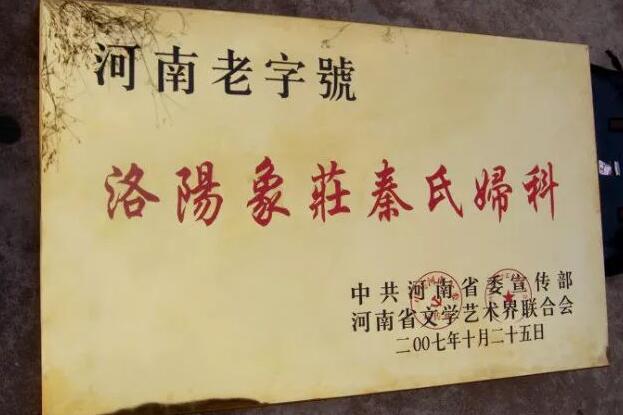 河南老字號
洛陽象莊秦氏婦科
中共河南省委宣传部
河南省文学艺术界联合会
二00七年十月二十五日